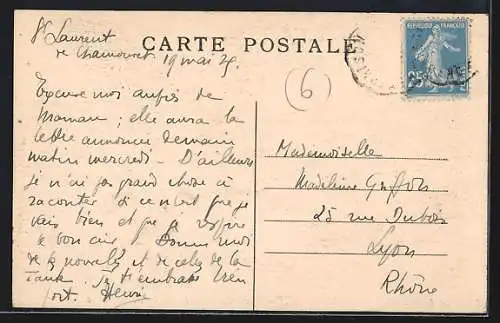 St Laurent
de Chamousset 19 mai 25.
CARTE POSTALE
REPUBLIQUE FRANÇAISE
25
(6)
Excuse moi auprès de
Maman ; elle aura la
lettre annoncée demain
matin mercredi. D'ailleurs
je n'ai pas grand chose à
raconter si ce n'est que je
vais bien et que je respire
le bon air. Donne moi
de tes nouvelles et de celles de la
Tante. Je t'embrasse bien
fort. Henri
Mademoiselle
Madeleine
25 rue Dubois
Lyon
Rhône